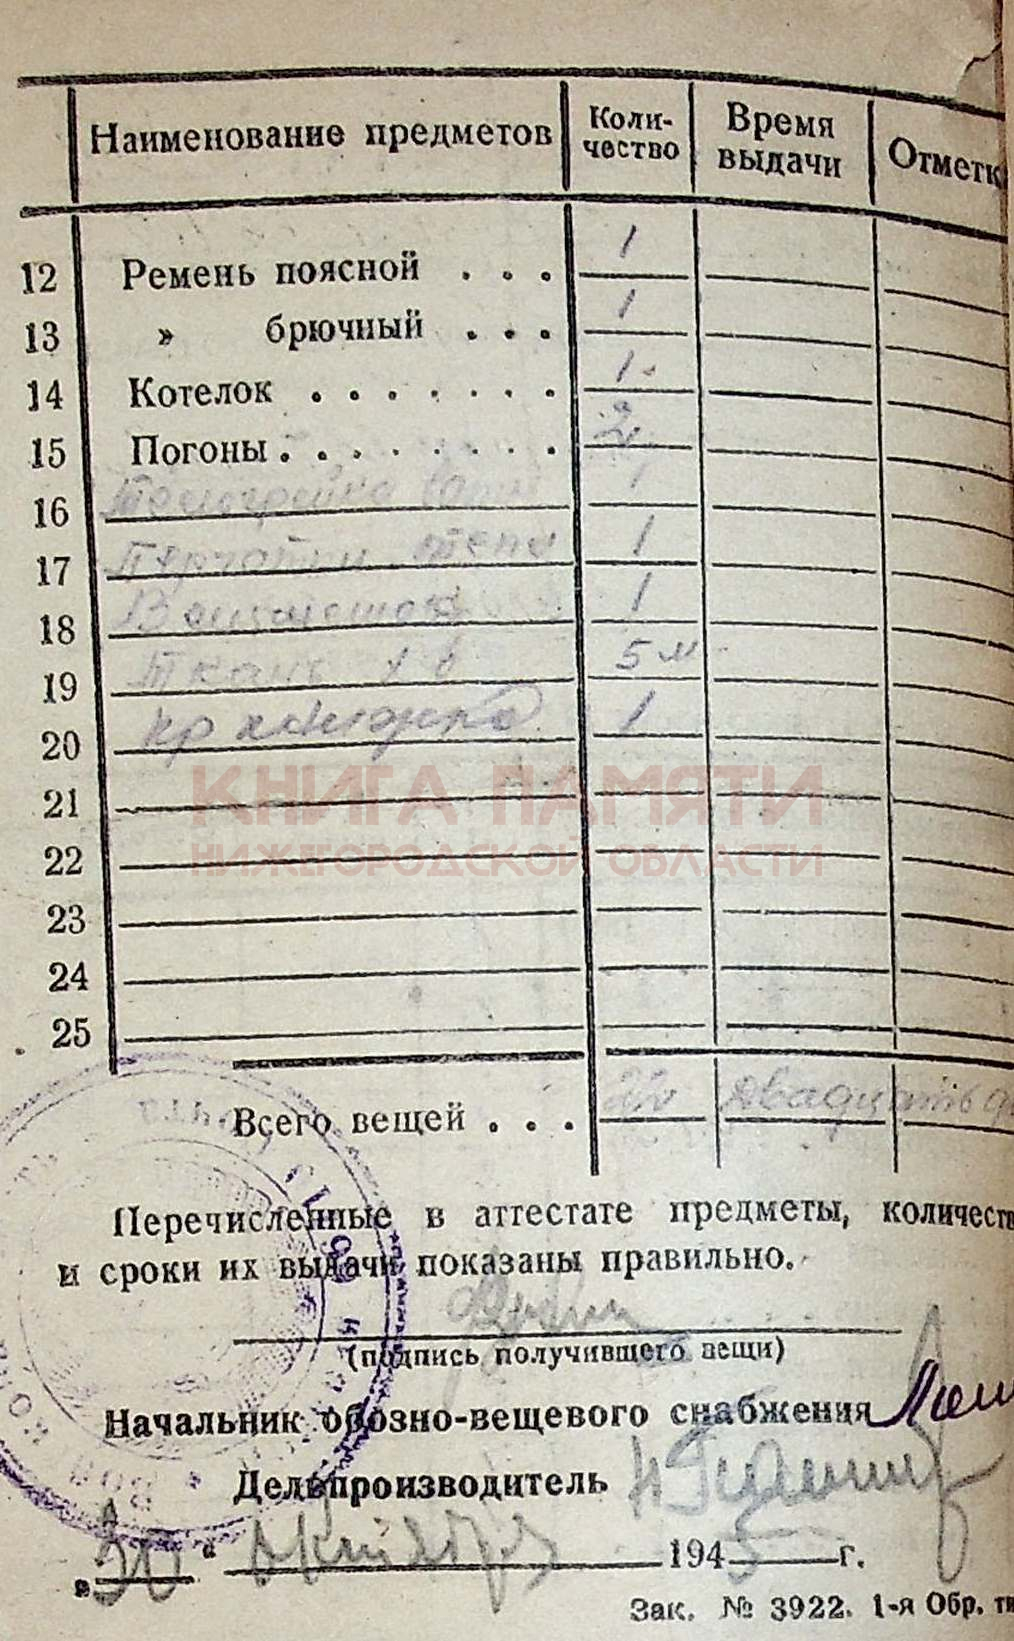 Наименование предметов Коли-чество Время выдачи Отметк
12 Ремень поясной . . . 1
13 » брючный . . . 1
14 Котелок . . . . . . . 1
15 Погоны . . . . . . . . 2
16 1
17 Перчатки 1
18 Вещмешок 1
19 Ткань х б 5 м
20 кр книжка 1
КНИГА ПАМЯТИ
21
НИЖЕГОРОДСКОЙ ОБЛАСТИ
22
23
24
25
Всего вещей . . . 22 двадцать
Перечисленные в аттестате предметы, количеств
и сроки их выдачи показаны правильно.
(подпись получившего вещи)
Начальник обозно-вещевого снабжения
Делопроизводитель
„30“ октября 1945 г.
Зак. № 3922. 1-я Обр. ти